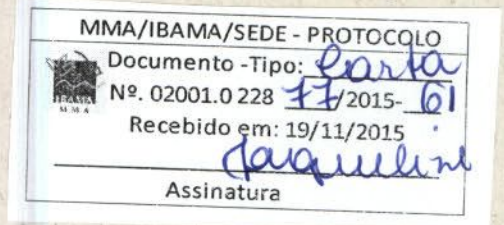 MMA/IBAMA/SEDE - PROTOCOLO
Documento -Tipo: Carta
Nº. 02001.0 228 77/2015- 61
IBAMA
M M A
Recebido em: 19/11/2015
Jaqueline
Assinatura